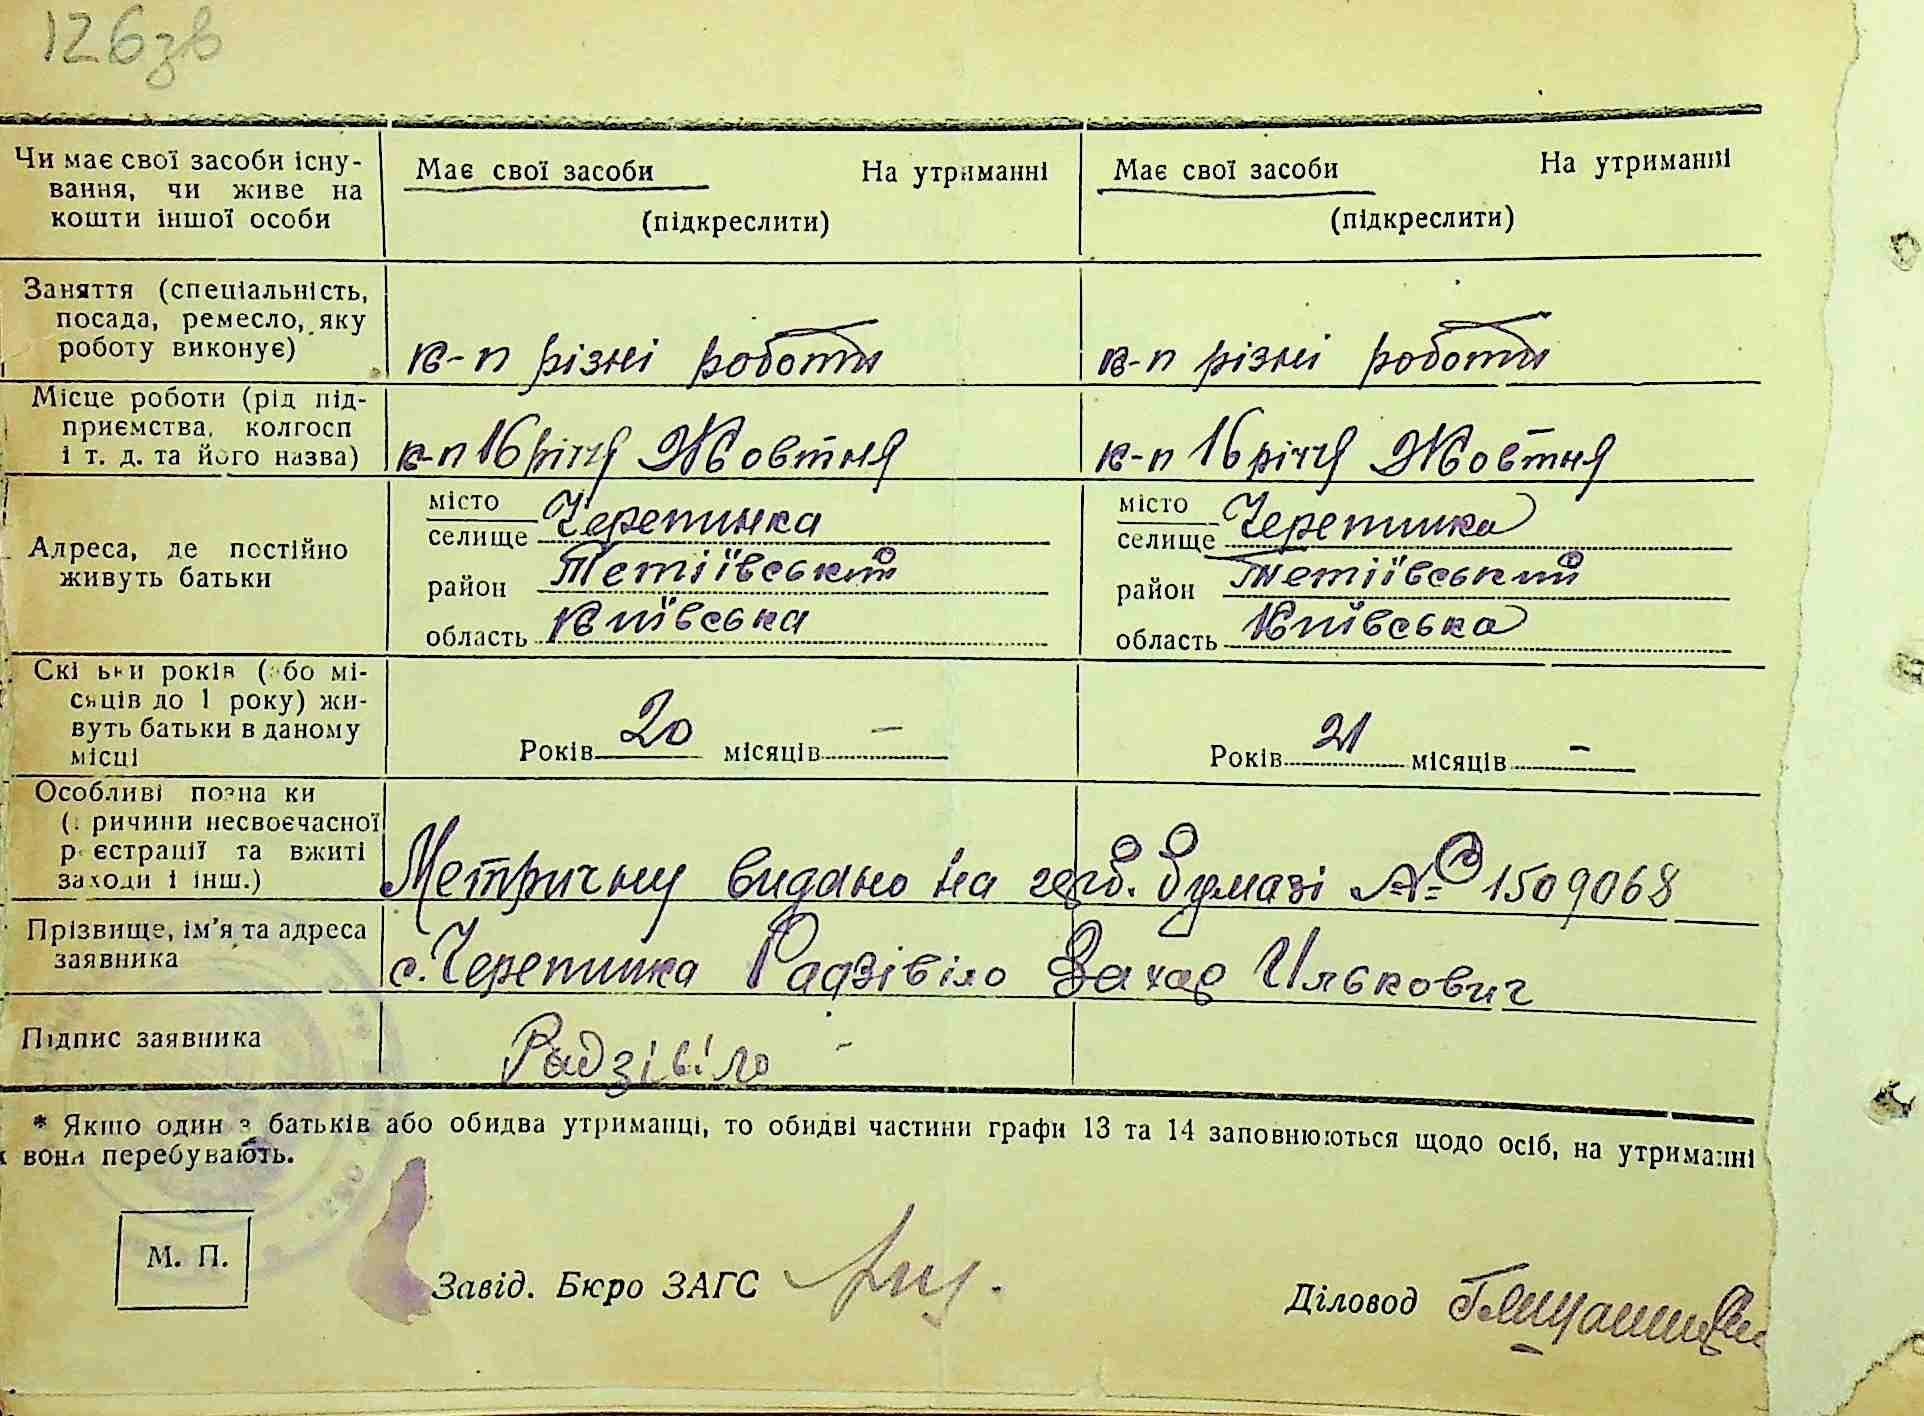 126зв
Чи має свої засоби існу-
вання, чи живе на
кошти іншої особи
Має свої засоби На утриманні
(підкреслити)
Має свої засоби На утриманні
(підкреслити)
Заняття (спеціальність,
посада, ремесло, яку
роботу виконує)
к-п різні роботи
к-п різні роботи
Місце роботи (рід під-
приємства, колгосп
і т. д. та його назва)
к-п 16 річчя Жовтня
к-п 16 річчя Жовтня
Адреса, де постійно
живуть батьки
місто
селище Черепинка
район Тетіївський
область Київська
місто
селище Черепинка
район Тетіївський
область Київська
Скільки років (або мі-
сяців до 1 року) жи-
вуть батьки в даному
місці
Років 20 місяців —
Років 21 місяців —
Особливі позначки
(причини несвоєчасної
реєстрації та вжиті
заходи і інш.)
Метричну видано на герб. бумазі № 1509068
Прізвище, ім'я та адреса
заявника
с. Черепинка Радзівіло Захар Илькович
Підпис заявника
Радзівіло
* Якщо один з батьків або обидва утриманці, то обидві частини графи 13 та 14 заповнюються щодо осіб, на утриманні
вони перебувають.
М. П.
Завід. Бюро ЗАГС
Діловод